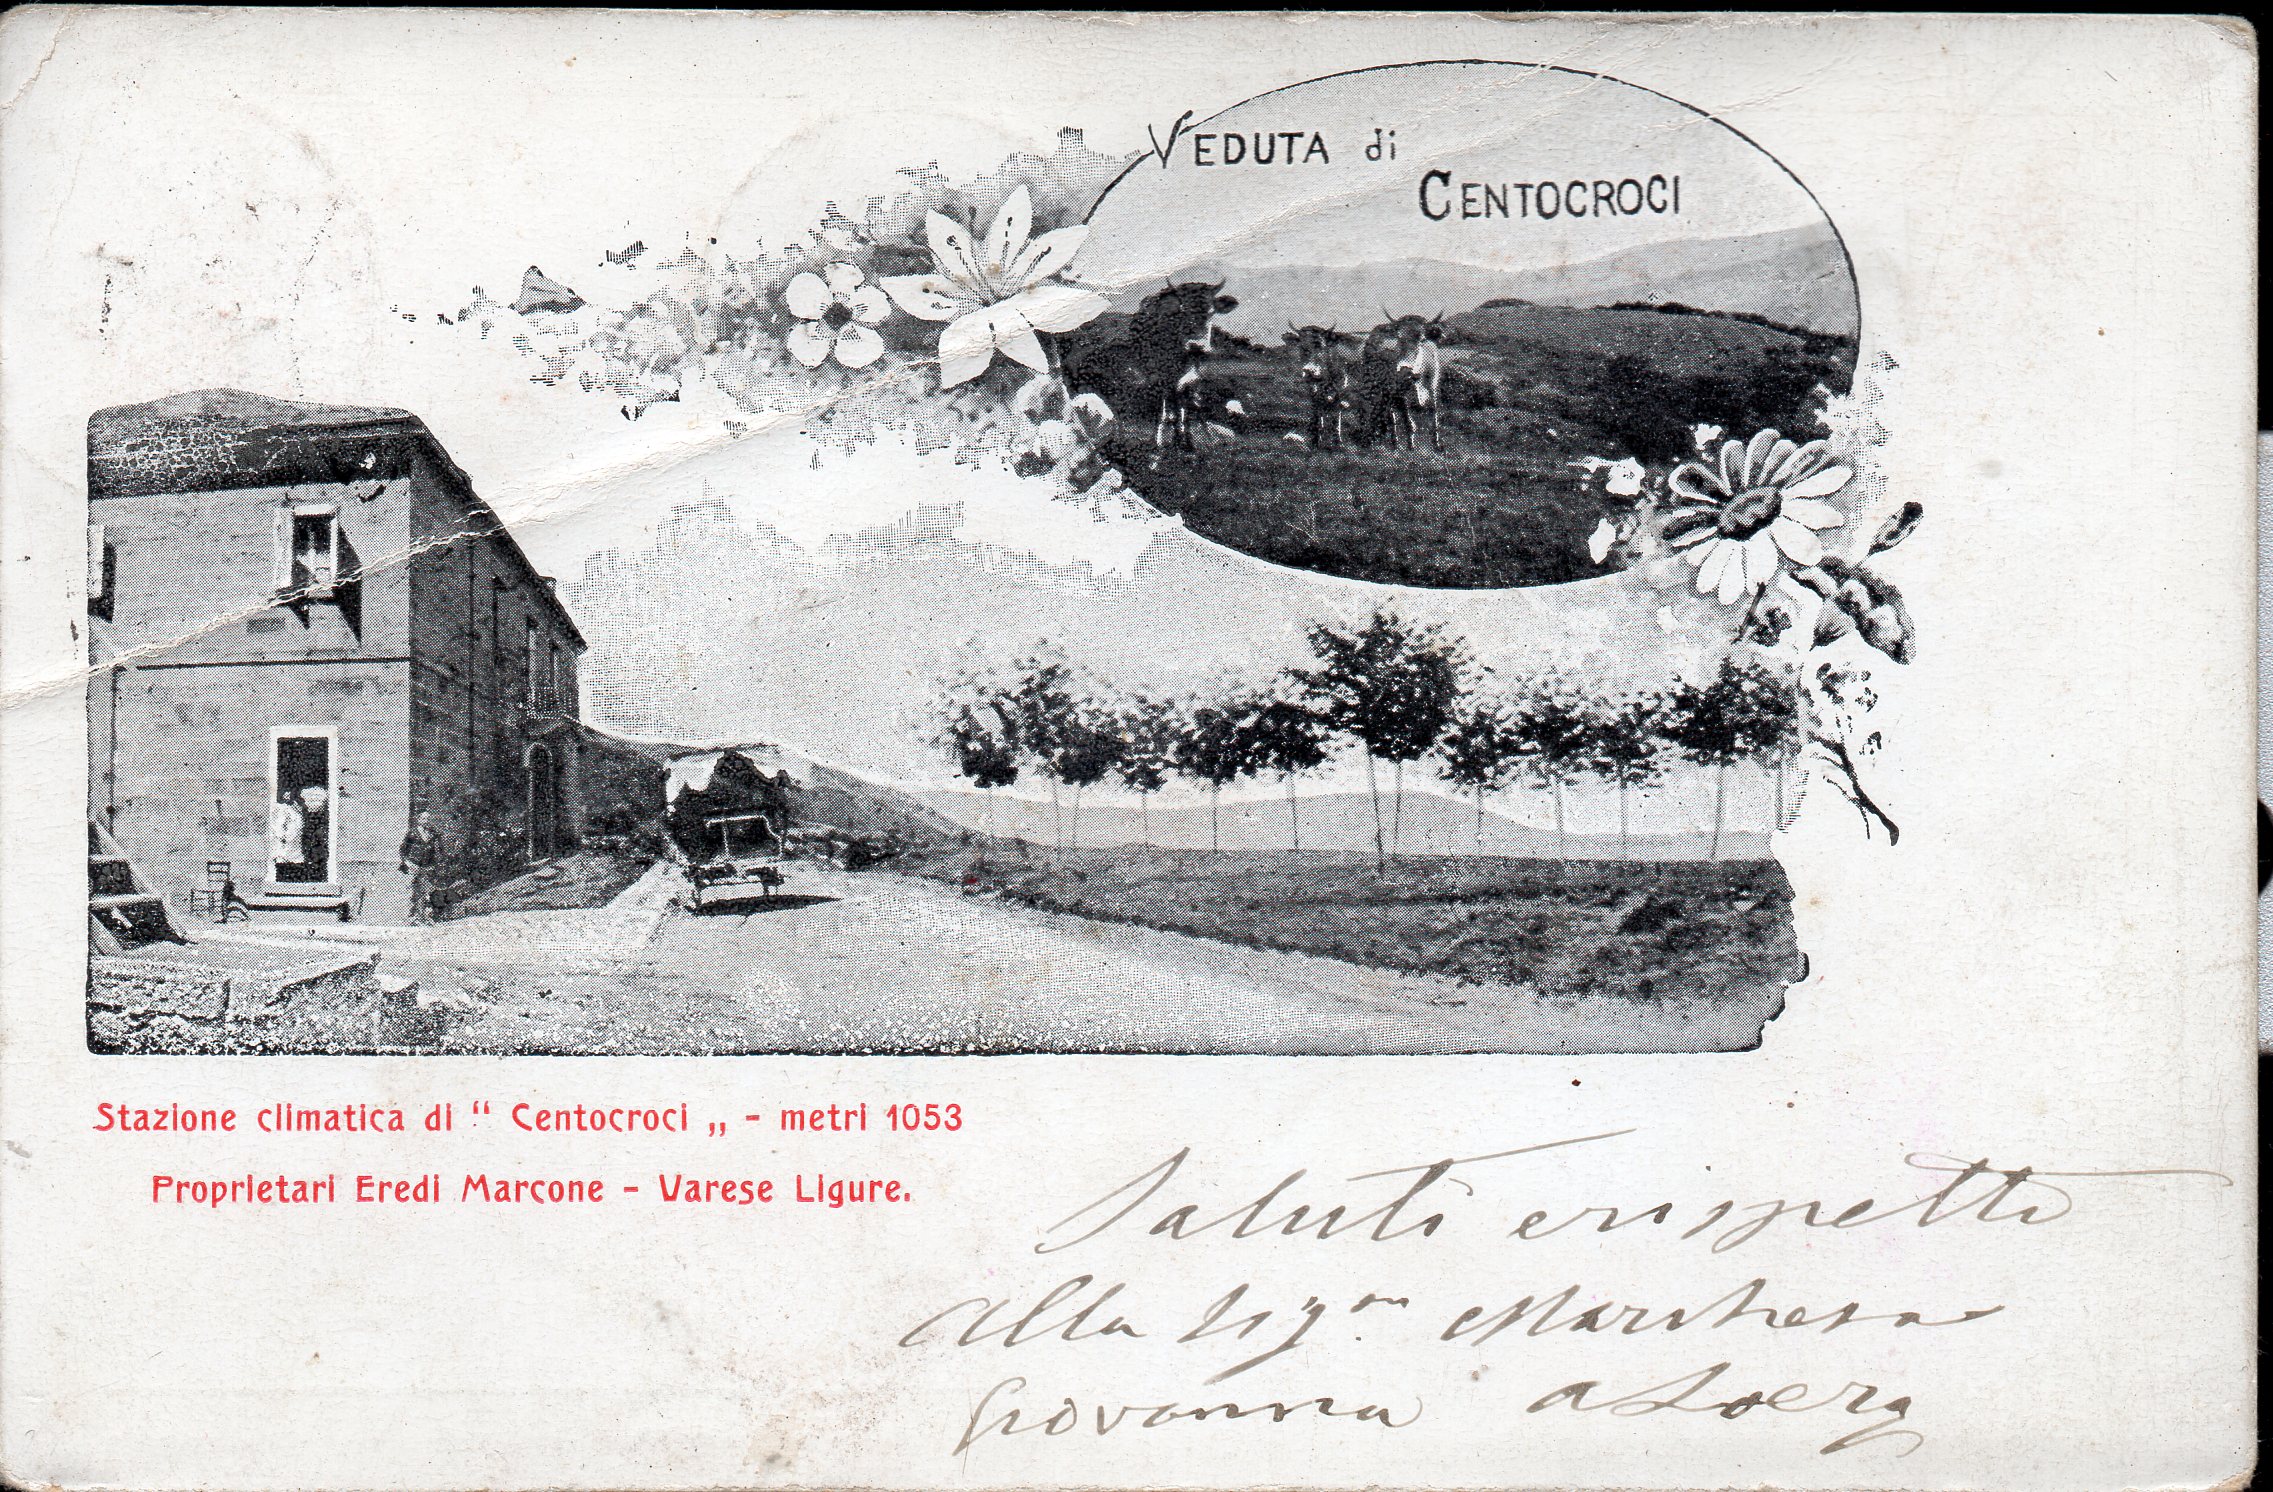 VEDUTA di
CENTOCROCI
Stazione climatica di “ Centocroci „ - metri 1053
Proprietari Eredi Marcone - Varese Ligure.
Saluti e rispetti
Alla Sig.ra Marchesa
Giovanna